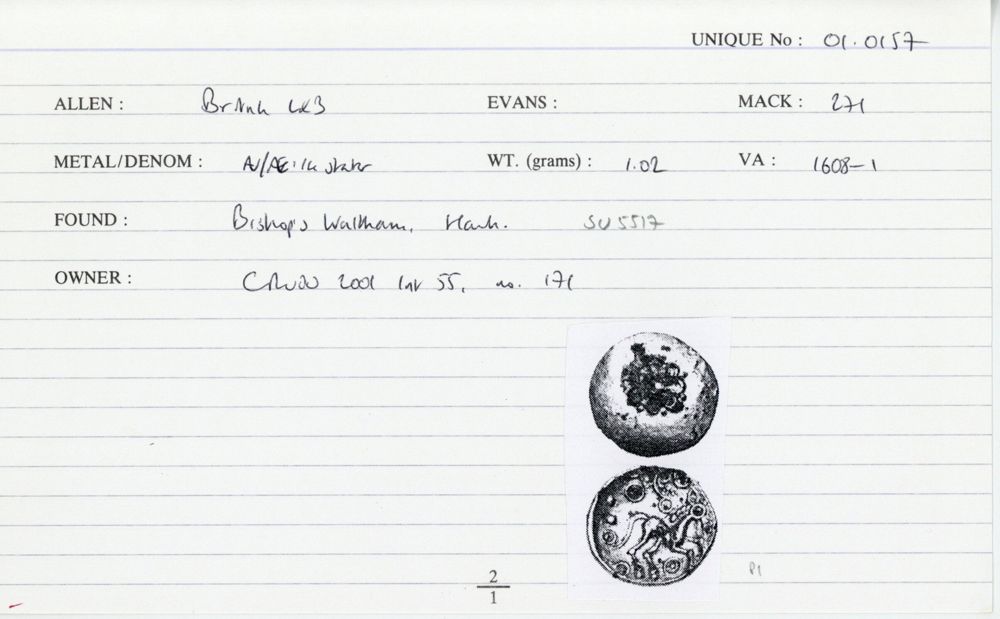 UNIQUE No : 01.0157
ALLEN : British LX3 EVANS : MACK : 271
METAL/DENOM : AV/AE 1/4 stater WT. (grams) : 1.02 VA : 1608-1
FOUND : Bishop's Waltham, Hants. SU 5517
OWNER : 2001 55, no. 171
2
1
P1